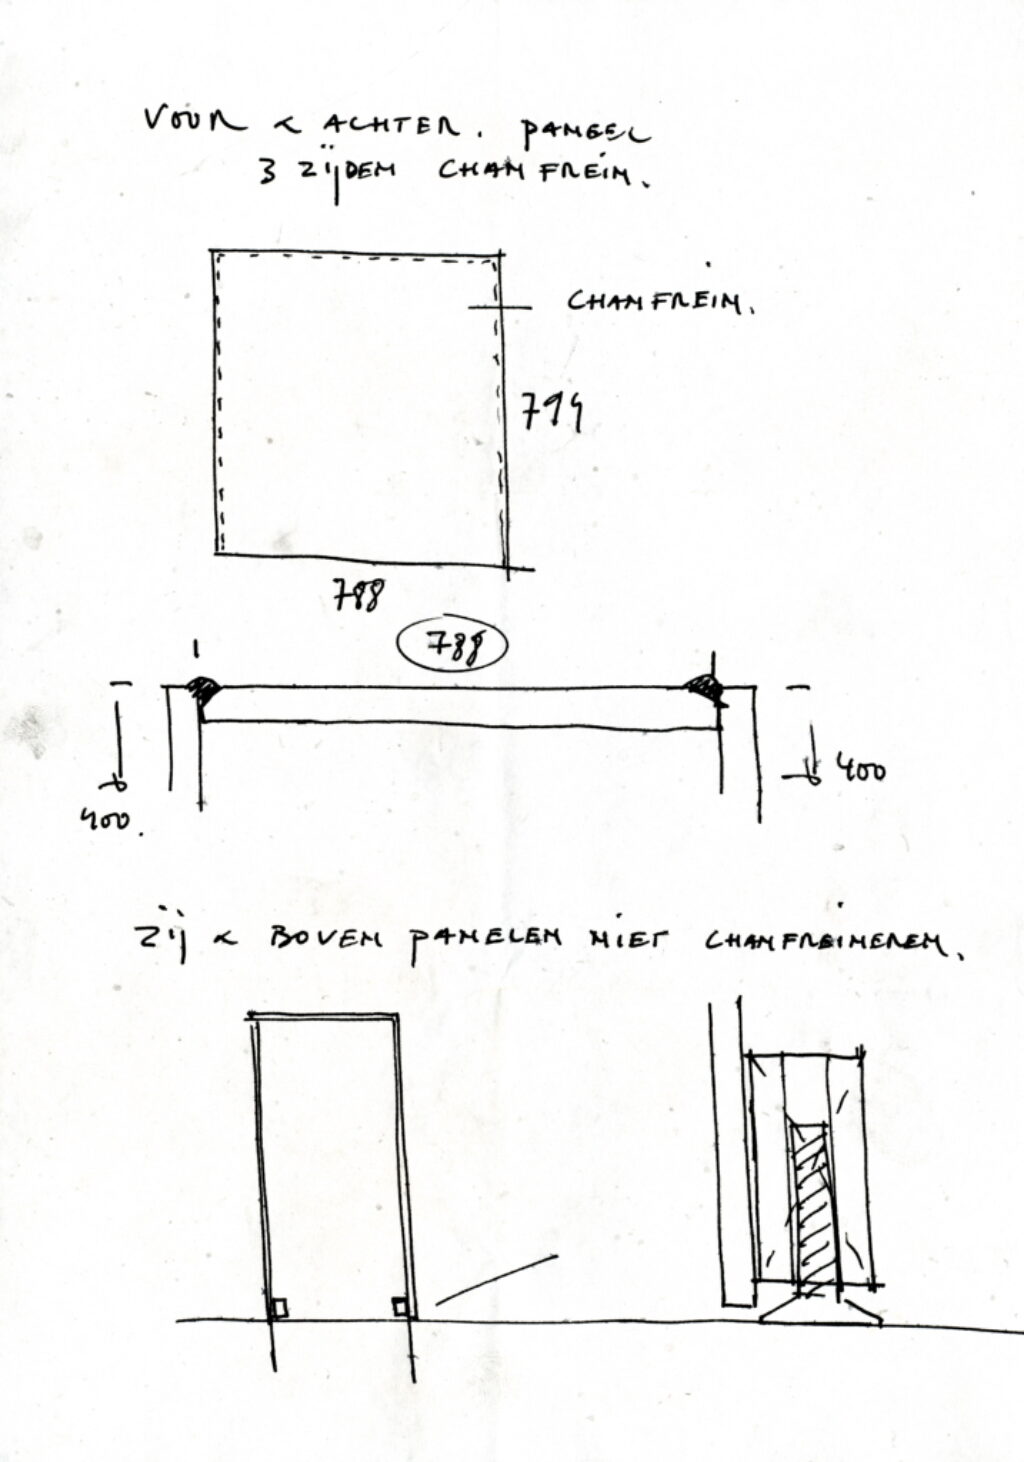 VOOR & ACHTER. PANEEL
3 ZIJDEN CHAMFREIN.
CHAMFREIN.
794
788
788
400
400.
ZIJ & BOVEN PANELEN NIET CHAMFREINEREN.